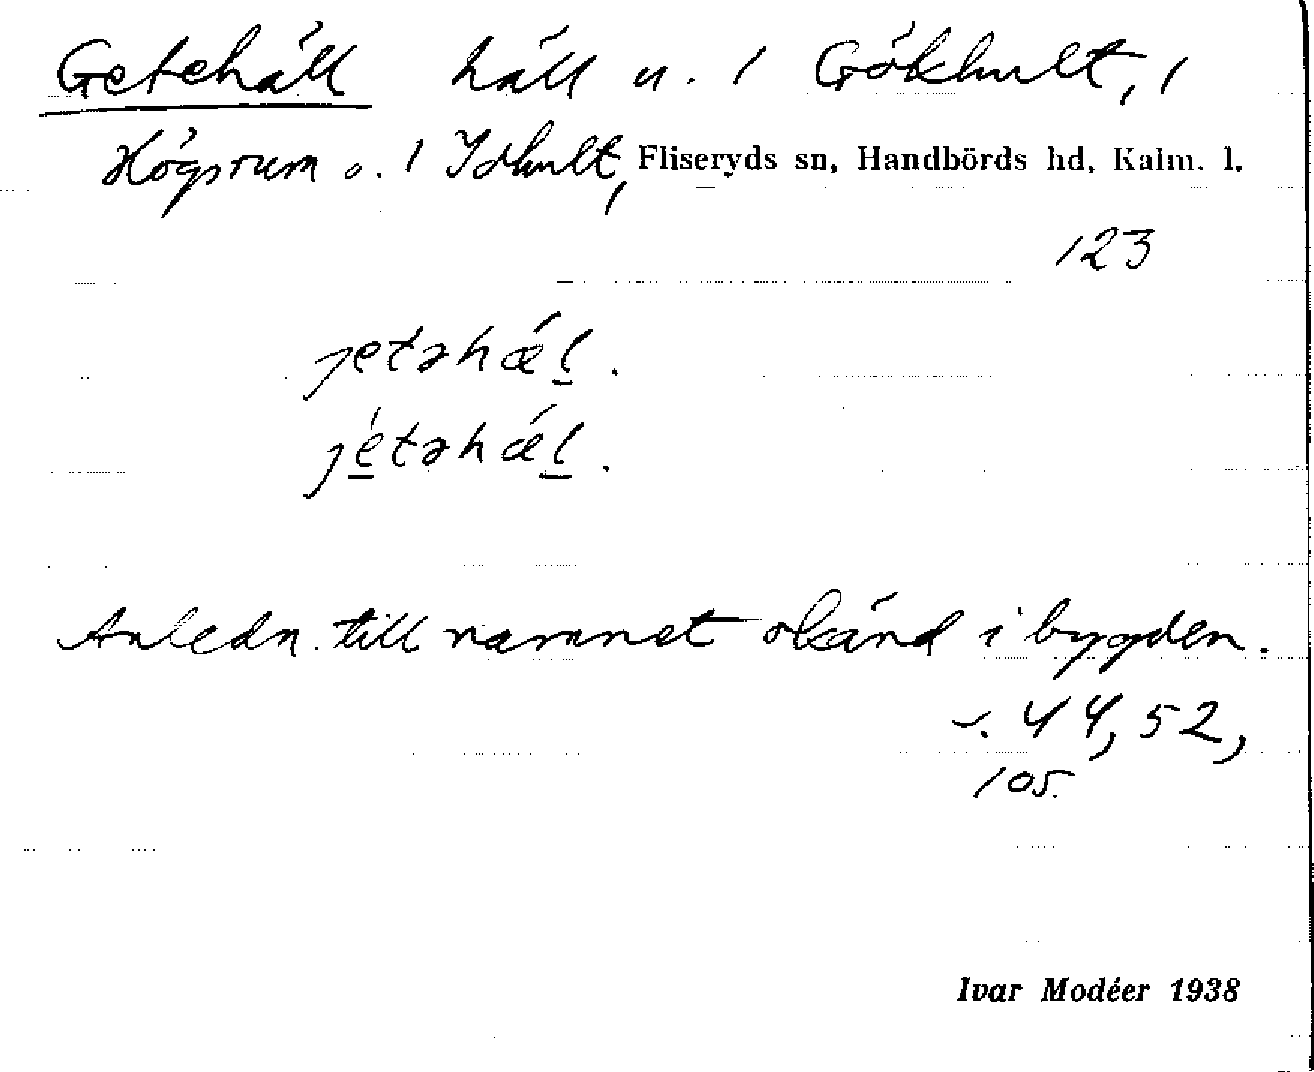 Getehäll häll u. 1 Gökhult, 1
Högsrum o. 1 Idhult, Fliseryds sn, Handbörds hd, Kalm. l.
123
jetəhæ´l.
jétəhæ´l.
Anledn. till namnet okänd i bygden.
44, 52,
105.
Ivar Modéer 1938